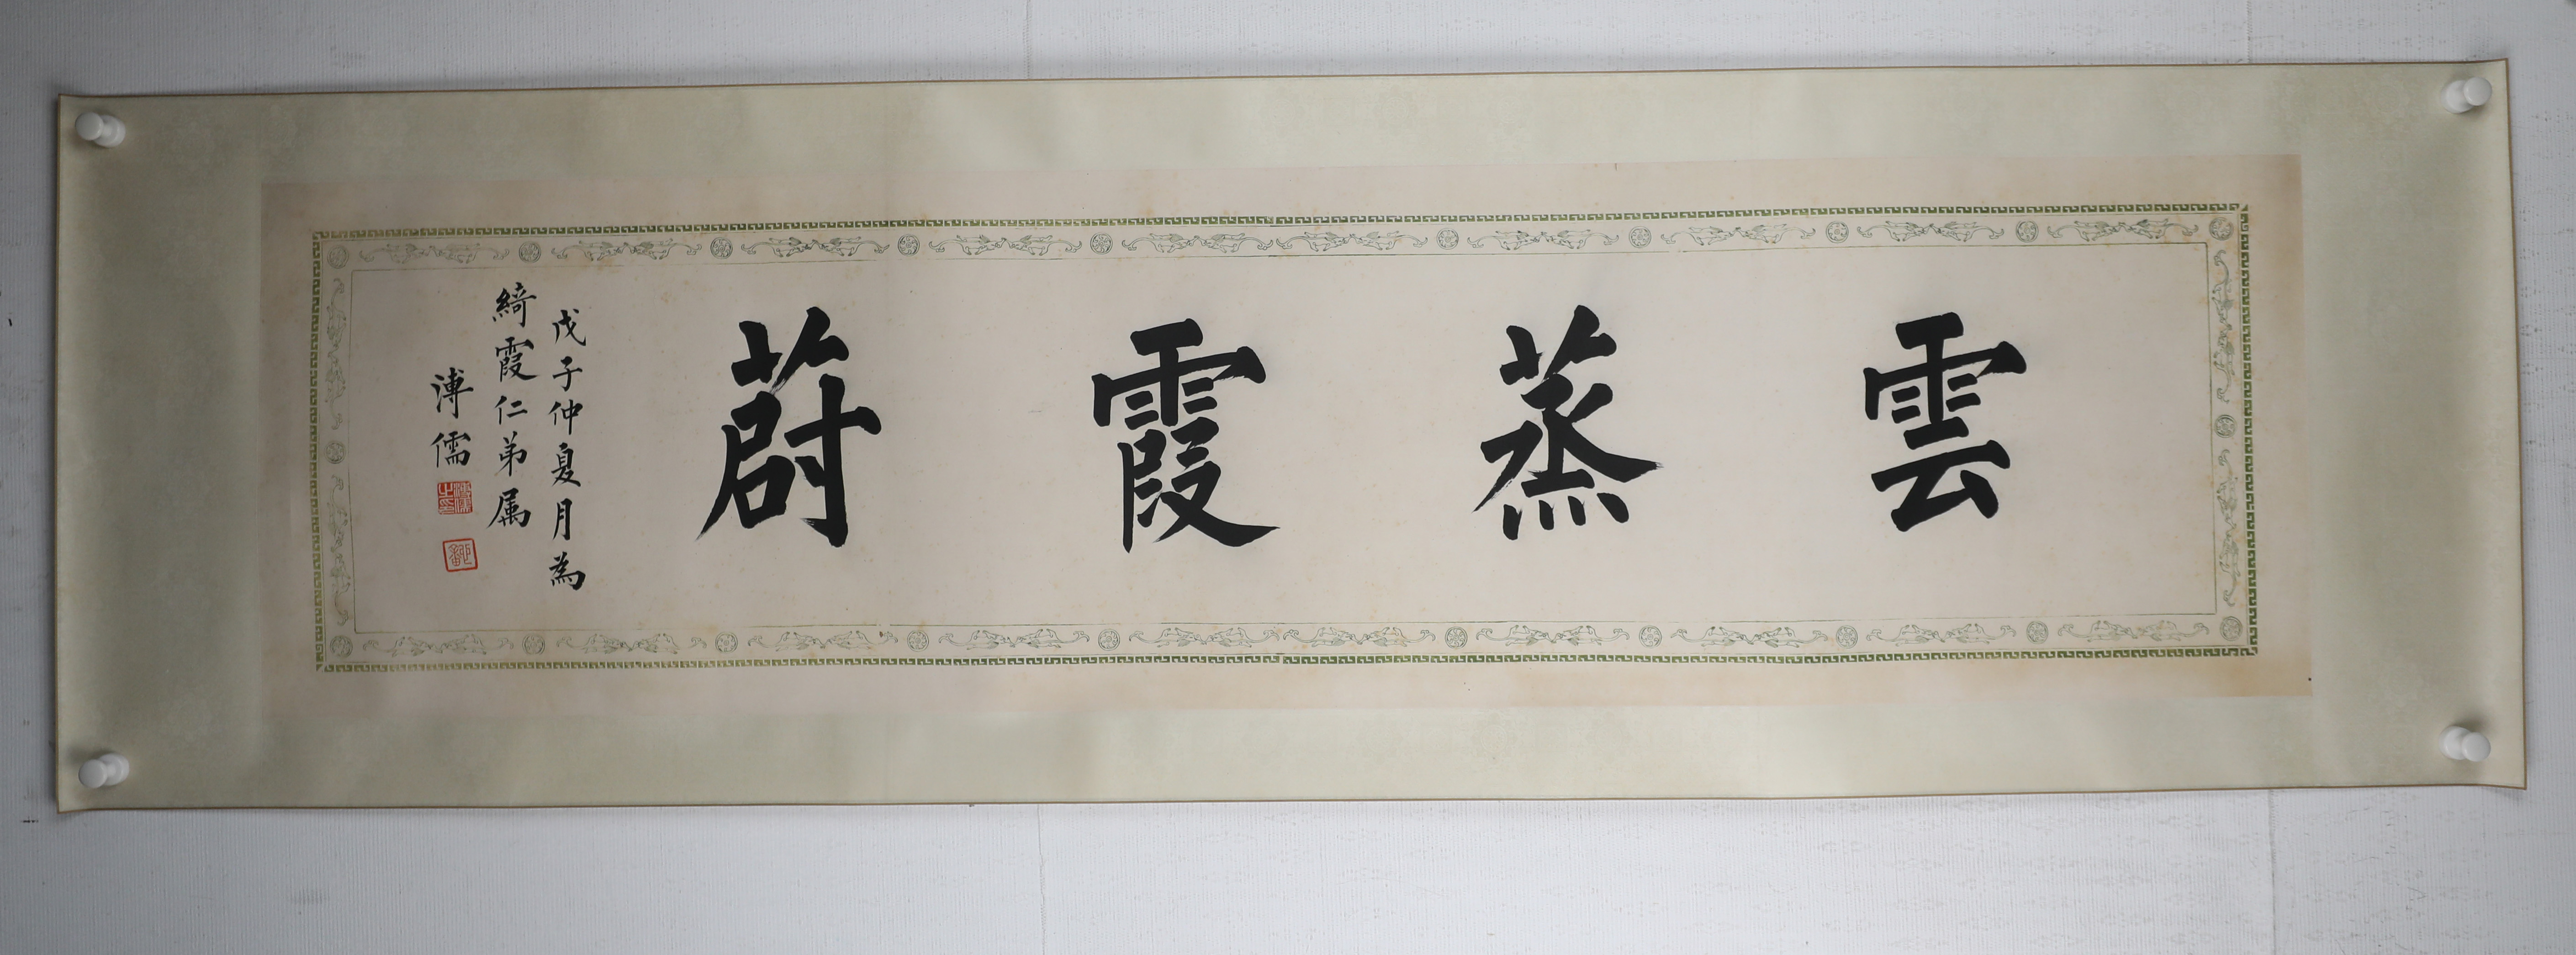 雲蒸霞蔚
戊子仲夏月為
綺霞仁弟属
溥儒
溥儒之印